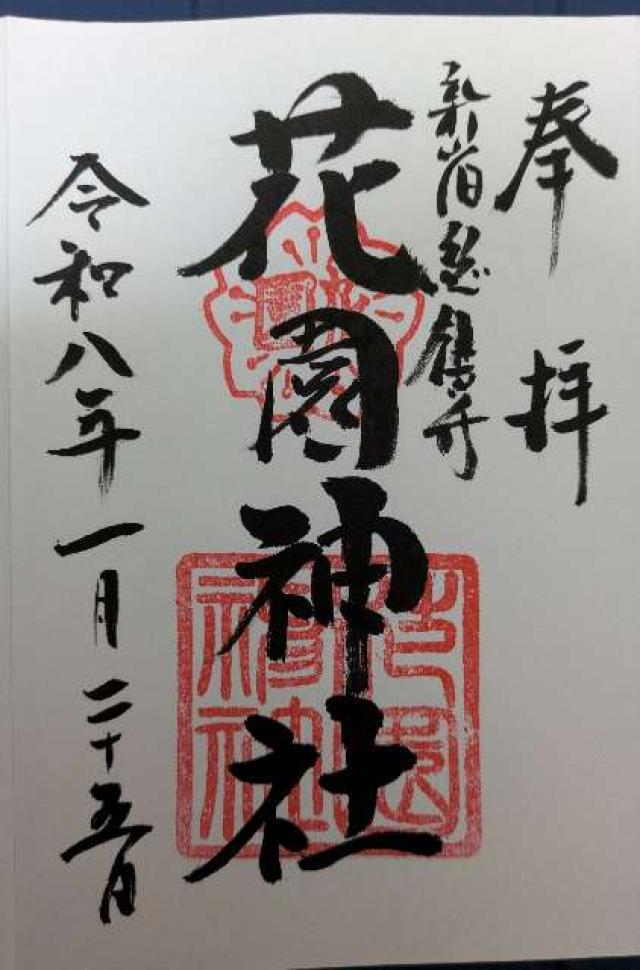 奉拝
新宿総鎮守
花園神社
令和八年一月二十五日
花園神社